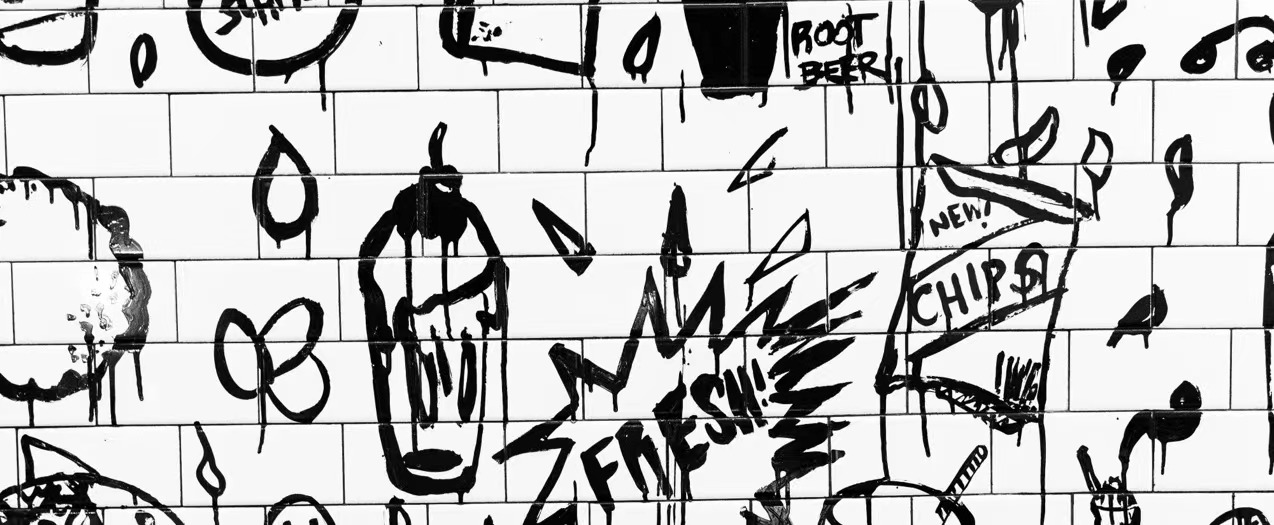 ROOT
BEER
NEW!
CHIPS
FRESH!